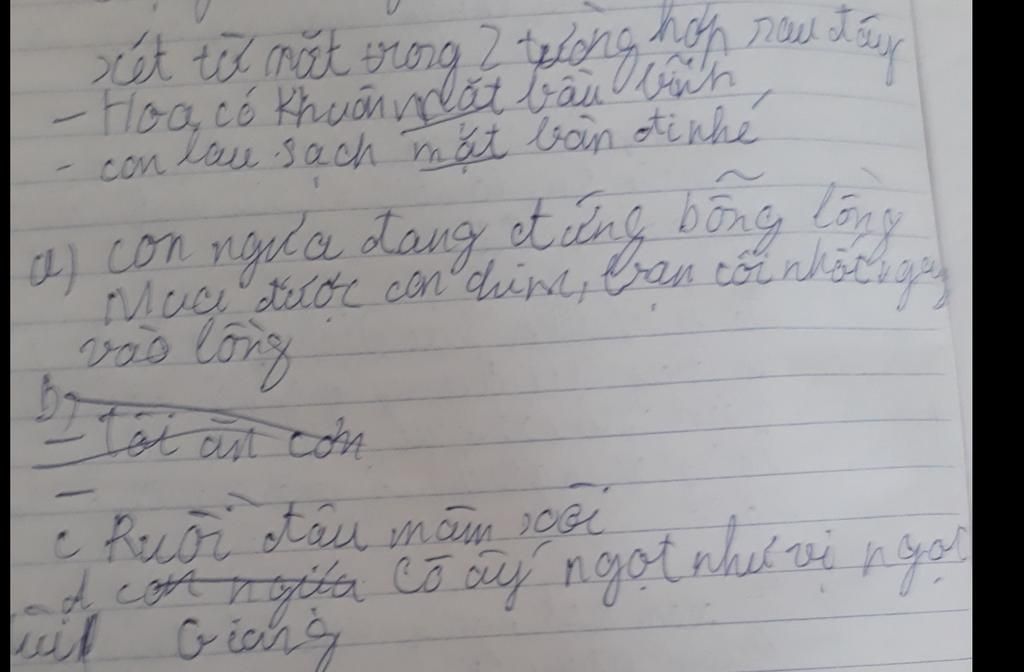 xét từ mặt trong 2 trường hợp sau đây
- Hoa có khuôn mặt bầu bĩnh
- con lau sạch mặt bàn đi nhé
a) con ngựa đang đứng bỗng lồng
Mua được con chim, bạn tôi nhốt ngay
vào lồng
b)
- Tôi ăn cơm
-
c Ruồi đậu mâm xôi
d con ngựa Cô ấy ngọt như vị ngọt
Giang